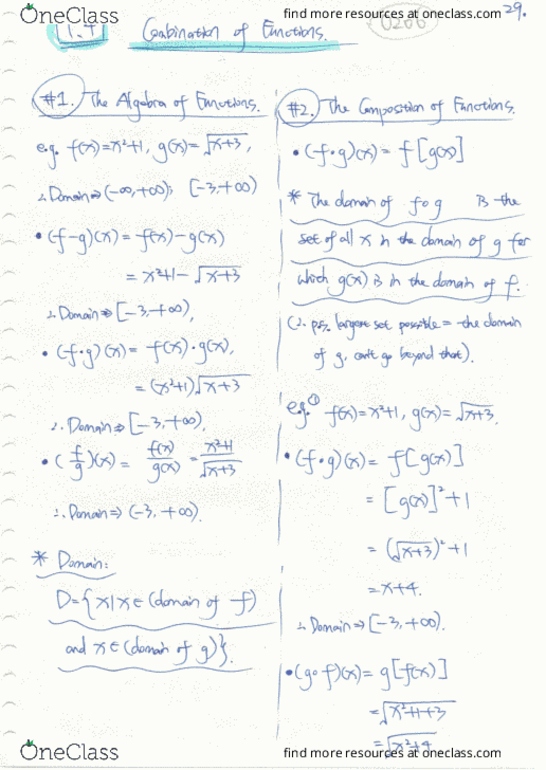 OneClass
find more resources at oneclass.com
29.
1.4 Combination of Functions.
#1. The Algebra of Functions.
e.g. f(x)=x²+1, g(x)=√x+3,
∴ Domain ⇒ (-∞,+∞); [-3,+∞)
• (f-g)(x) = f(x)-g(x)
= x²+1-√x+3
∴ Domain ⇒ [-3,+∞),
• (f·g)(x) = f(x)·g(x),
= (x²+1)√x+3
∴ Domain ⇒ [-3,+∞),
• (f/g)(x) = f(x)/g(x) = x²+1/√x+3
∴ Domain ⇒ (-3,+∞).
* Domain:
D={x|x∈(domain of f)
and x∈(domain of g)}.
#2. The Composition of Functions.
• (f·g)(x) = f[g(x)]
* The domain of fog is the
set of all x in the domain of g for
which g(x) is in the domain of f.
largest set possible = the domain
of g. can't go beyond that).
e.g.① f(x)=x²+1, g(x)=√x+3.
• (f·g)(x) = f[g(x)]
= [g(x)]²+1
= (√x+3)²+1
= x+4.
∴ Domain ⇒ [-3,+∞).
• (g∘f)(x) = g[f(x)]
= √x²+1+3
= √x²+4
OneClass
find more resources at oneclass.com